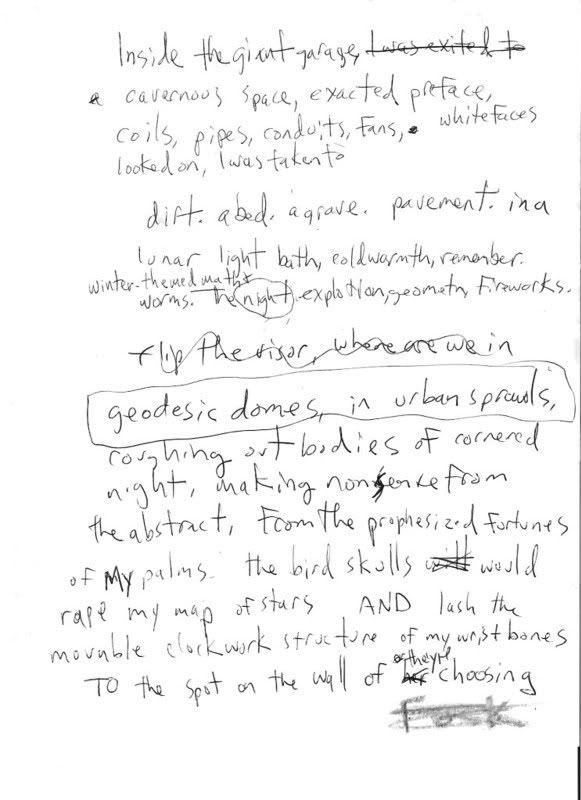 Inside the giant garage, I was exited to
a cavernous space, exacted preface,
coils, pipes, conduits, fans, whitefaces
looked on, I was taken to
dirt. a bed. a grave. pavement. in a
lunar light bath, coldwarmth, remember.
winter-themed math
worms. The night. explotion, geometry, fireworks.
flip the visor, where are we in
geodesic domes, in urban sprawls,
coughing out bodies of cornered
night, making nonsense from
the abstract, from the prophesized fortunes
of My palms. the bird skulls will would
rape my map of stars AND lash the
movable clockwork structure of my wrist bones
TO the spot on the wall of
they're choosing